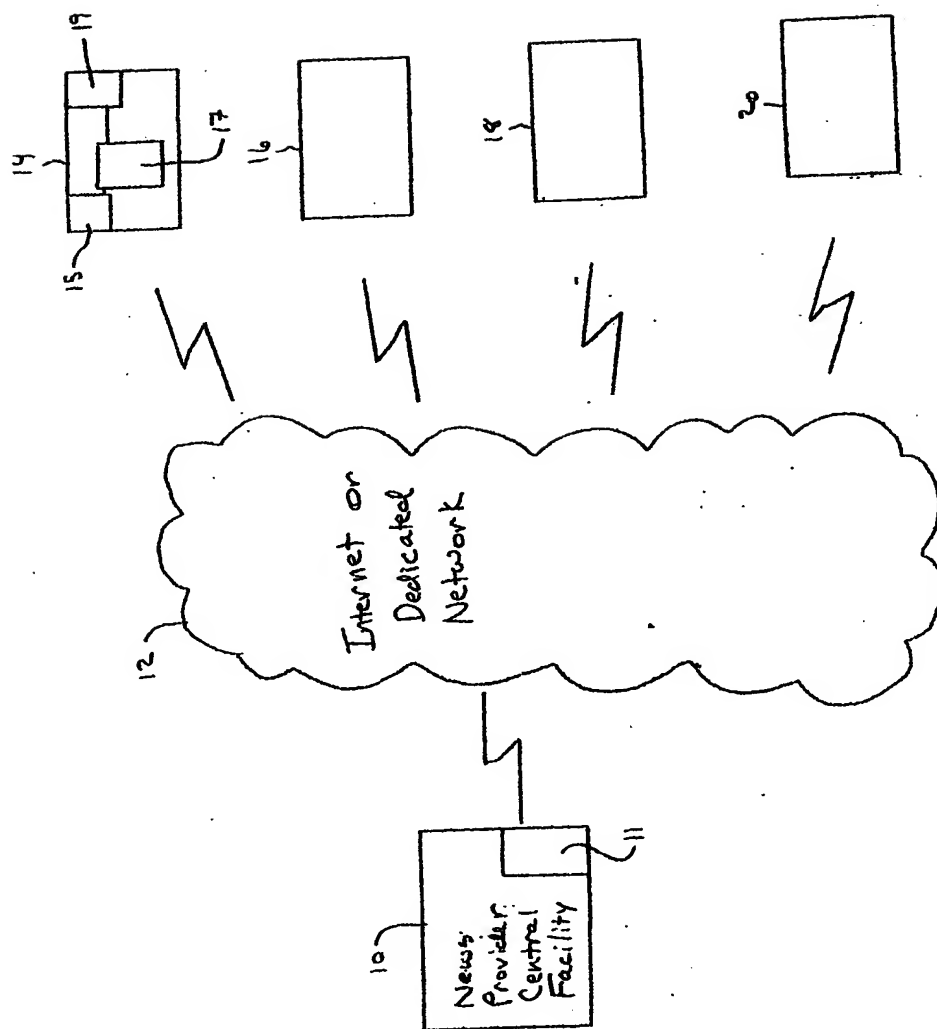 10
News
Provider
Central
Facility
11
12
Internet or
Dedicated
Network
14
15
17
19
16
18
20